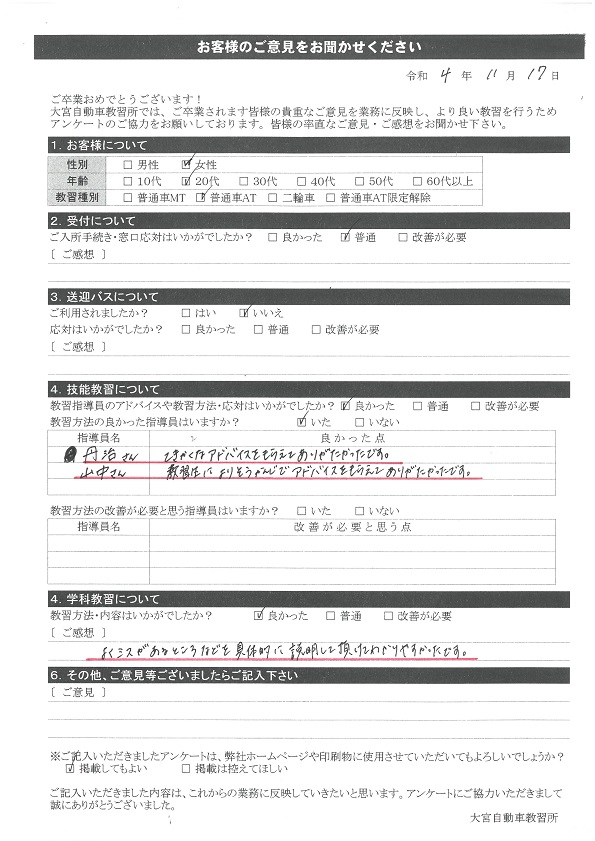 お客様のご意見をお聞かせください
令和 4 年 11 月 17 日
ご卒業おめでとうございます！
大宮自動車教習所では、ご卒業されます皆様の貴重なご意見を業務に反映し、より良い教習を行うため
アンケートのご協力をお願いしております。皆様の率直なご意見・ご感想をお聞かせ下さい。
1. お客様について
性別 □ 男性 ☑ 女性
年齢 □ 10代 ☑ 20代 □ 30代 □ 40代 □ 50代 □ 60代以上
教習種別 □ 普通車MT ☑ 普通車AT □ 二輪車 □ 普通車AT限定解除
2. 受付について
ご入所手続き・窓口応対はいかがでしたか？ □ 良かった ☑ 普通 □ 改善が必要
[ ご感想 ]
3. 送迎バスについて
ご利用されましたか？ □ はい ☑ いいえ
応対はいかがでしたか？ □ 良かった □ 普通 □ 改善が必要
[ ご感想 ]
4. 技能教習について
教習指導員のアドバイスや教習方法・応対はいかがでしたか？ ☑ 良かった □ 普通 □ 改善が必要
教習方法の良かった指導員はいますか？ ☑ いた □ いない
指導員名 良かった点
丹治さん てきかくなアドバイスをもらえてありがたかったです。
山中さん 教習生によりそうかんじでアドバイスをもらえてありがたかったです。
教習方法の改善が必要と思う指導員はいますか？ □ いた □ いない
指導員名 改善が必要と思う点
4. 学科教習について
教習方法・内容はいかがでしたか？ ☑ 良かった □ 普通 □ 改善が必要
[ ご感想 ]
よくミスがあるところなどを具体的に説明して頂けてわかりやすかったです。
6. その他、ご意見等ございましたらご記入下さい
[ ご意見 ]
※ご記入いただきましたアンケートは、弊社ホームページや印刷物に使用させていただいてもよろしいでしょうか？
☑ 掲載してもよい □ 掲載は控えてほしい
ご記入いただきました内容は、これからの業務に反映していきたいと思います。アンケートにご協力いただきまして
誠にありがとうございました。
大宮自動車教習所